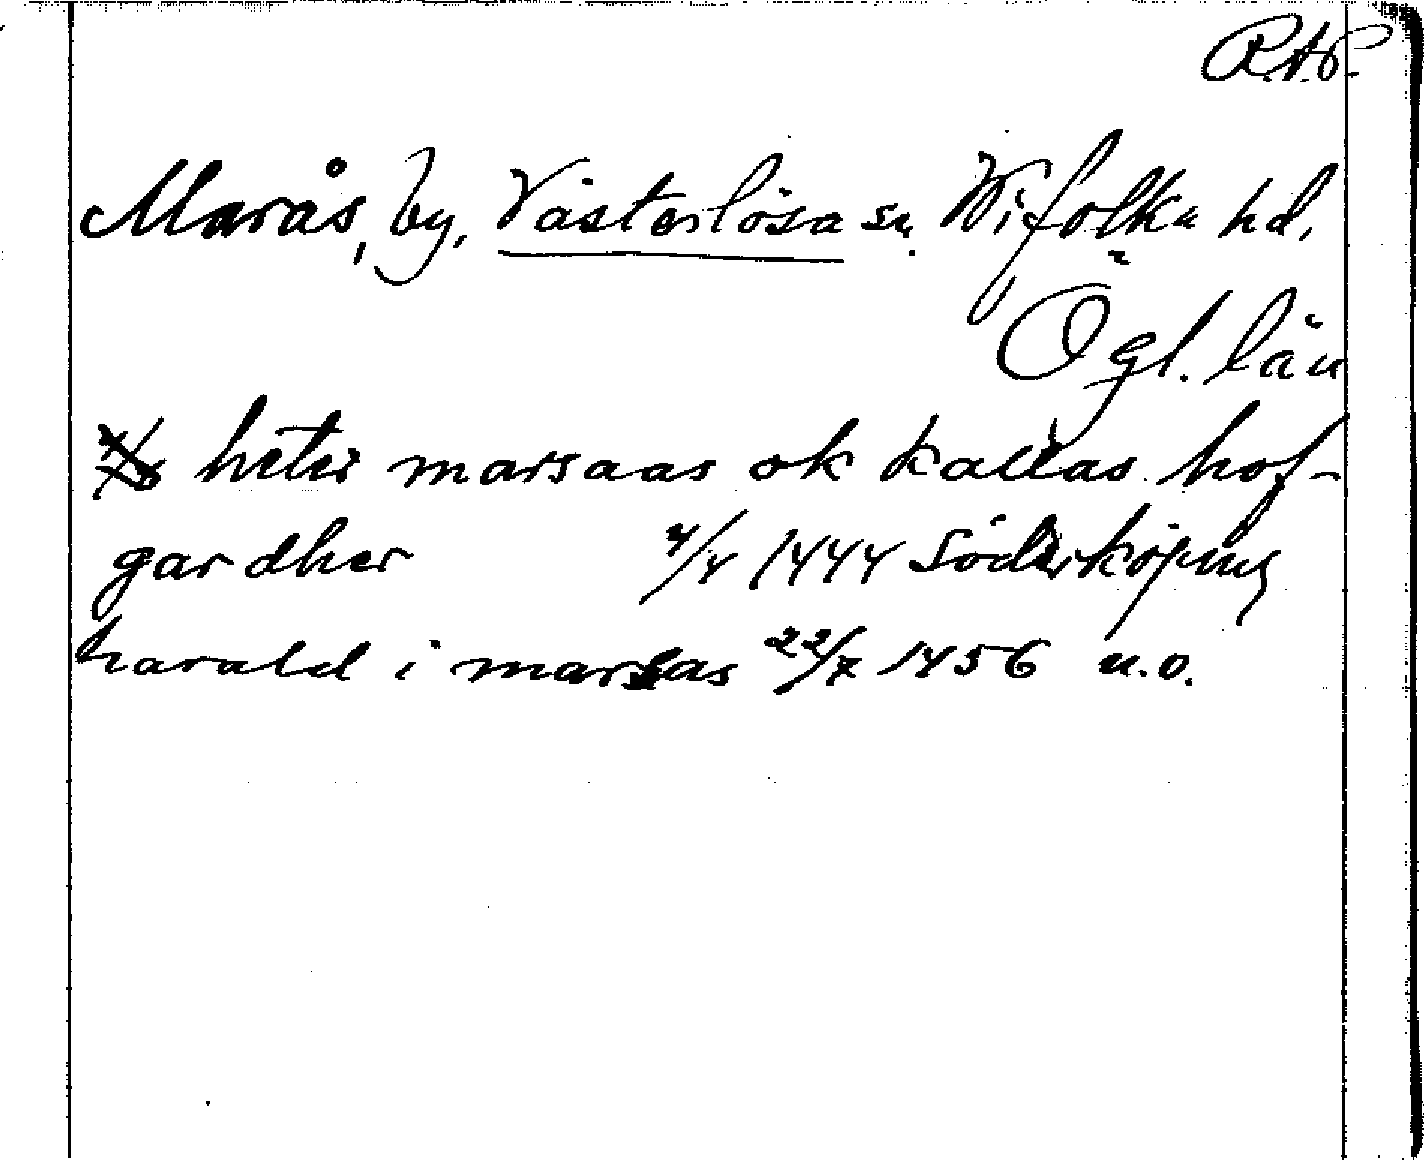 R.A.P.
Marås, by, Västerlösa sn. Wifolka hd,
Ögl. län
heter marsaas ok kallas hof-
gardher 4/4 1444 Söderköping
harald i marsas 22/7 1456 u.o.